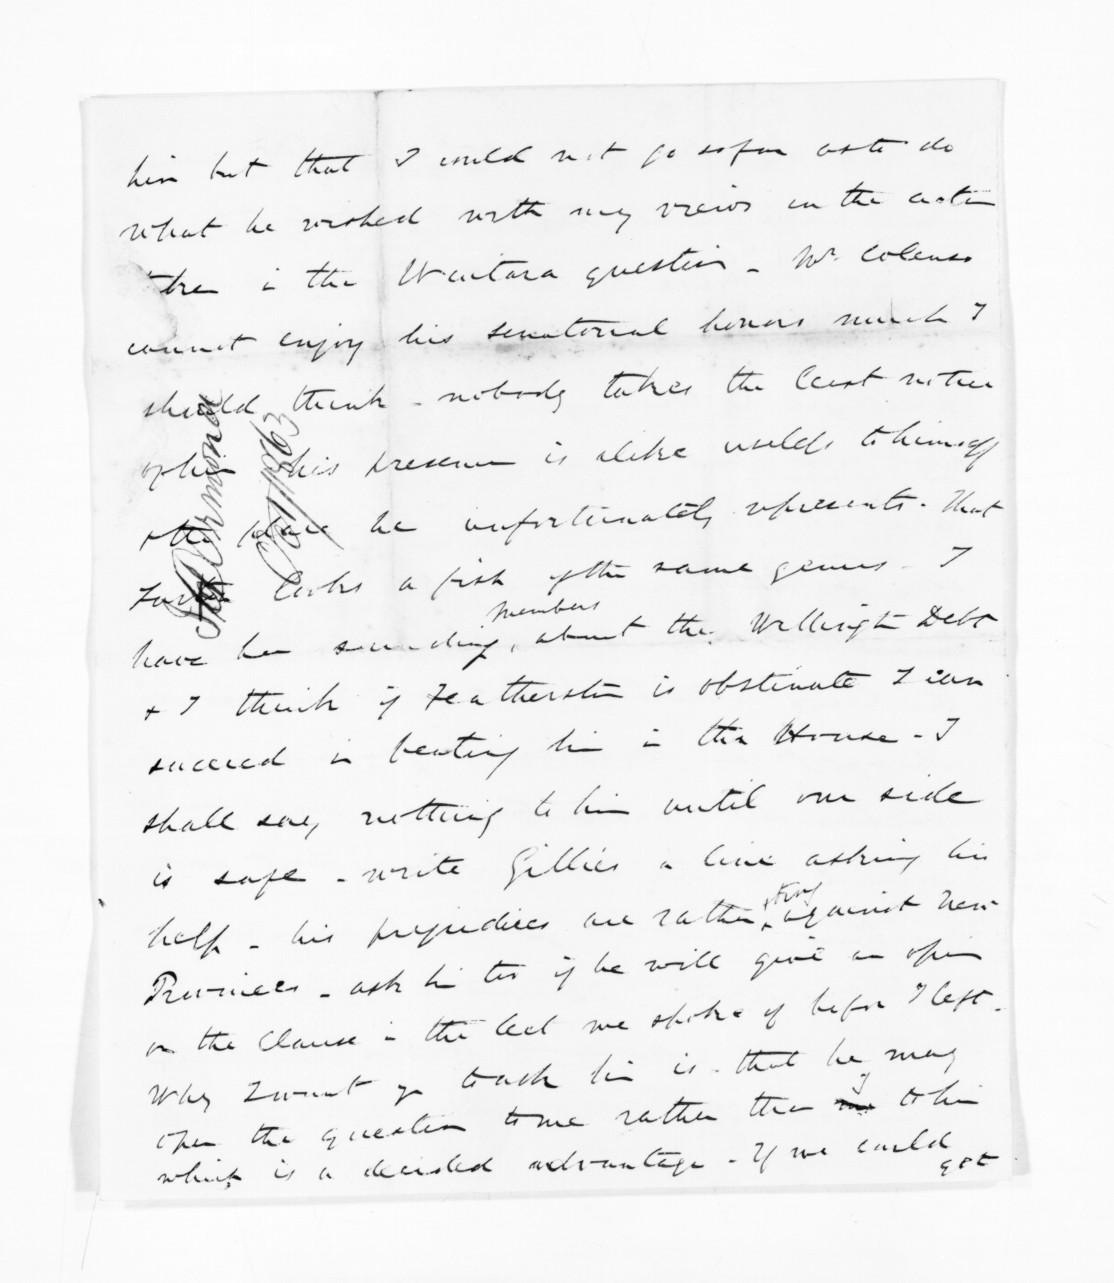 him but that I could not go so far as to do
what he wished with my views on the action
taken in the Waitara question - Mr Colenso
cannot enjoy his senatorial honors much I
should think - nobody takes the least notice
of him his presence is alike useless to himself
& the place he unfortunately represents. That
looks a fish of the same genus - I
have been sounding members about the Wellington Debt
& I think if Featherston is obstinate I can
succeed in beating him in the House - I
shall say nothing to him until our side
is safe - write Gillies a line asking his
help - his prejudices are rather strong against New
Provinces - ask him too if he will give an opin
on the Clause in the Act we spoke of before I left -
Why I want you to ask him is - that he may
open the question to me rather than I to him
which is a decided advantage - If we could
get